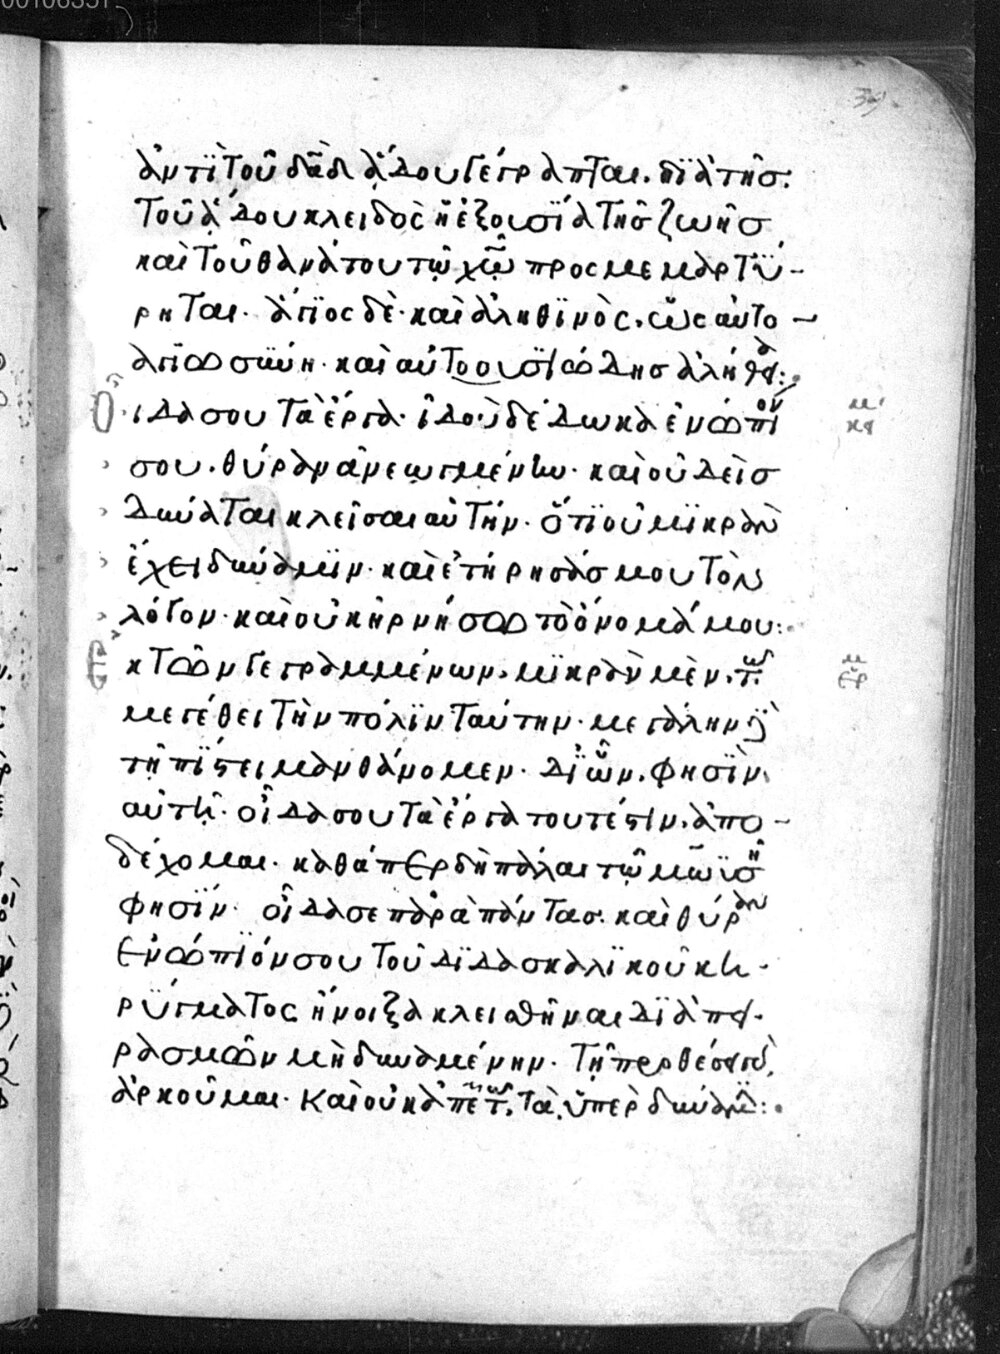 00106351
39.
ἀντὶ τοῦ δᾶδ ἅδου γέγραπται. διὰ τῆσ
τοῦ ἅδου κλειδὸς ἡ ἐξουσία τῆσ ζωῆσ
καὶ τοῦ θανάτου τῷ χῷ προςμεμαρτύ-
ρηται. ἅγιος δὲ καὶ ἀληθινὸς. ὡς αὐτο-
αγιωσύνη. καὶ αὐτοουσιώδησ ἀλήθ:
Ο ιδα σου τὰ ἔργα. ἰδοὺ δέδωκα ἐνώπιον
σου. θύραν ἀνεωγμένην. καὶ οὐδεὶσ
δύναται κλεῖσαι αὐτήν. ὅτι οὐ μικρὰν
ἔχει δύναμιν. καὶ ἐτήρησάσ μου τὸν
λόγον. καὶ οὐκ ἠρνήσω τὸ ὄνομά μου:
Ε κ τῶν γεγραμμένων. μικρὰν μὲν. τ
μεγέθει τὴν πόλιν ταύτην. μεγάλην
τῇ πίστει μανθάνομεν. δι ὧν. φησὶν
αὐτῇ. οἶδα σου τὰ ἔργα τουτέστιν. ἀπο-
δέχομαι. καθάπερ δὴ πάλαι τῷ μωϊσῆ
φησίν. οἶδα σε παρὰ πάντασ. καὶ θύραν
ἐνώπιόν σου τοῦ διδασκαλικοῦ κη-
ρύγματος ἤνοιξα κλεισθῆναι διὰ πει-
ρασμῶν μὴ δυναμένην. τῇ προθέσει
ἀρκοῦμαι. καὶ οὐκ ἀπετ. τὰ ὑπὲρ δύναμι: